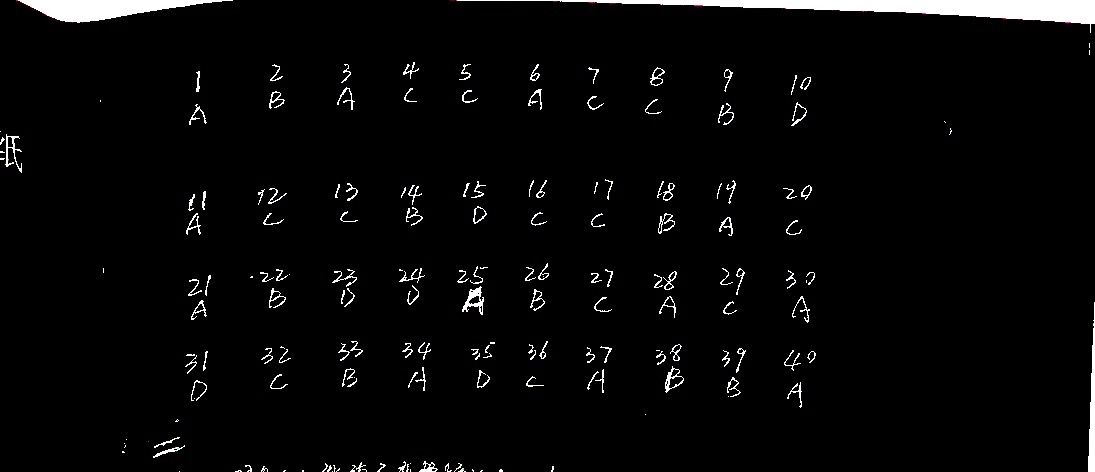 1 2 3 4 5 6 7 8 9 10
A B A C C A C C B D
纸
11 12 13 14 15 16 17 18 19 20
A C C B D C C B A C
21 22 23 24 25 26 27 28 29 30
A B D D A B C A C A
31 32 33 34 35 36 37 38 39 40
D C B A D C A B B A
二